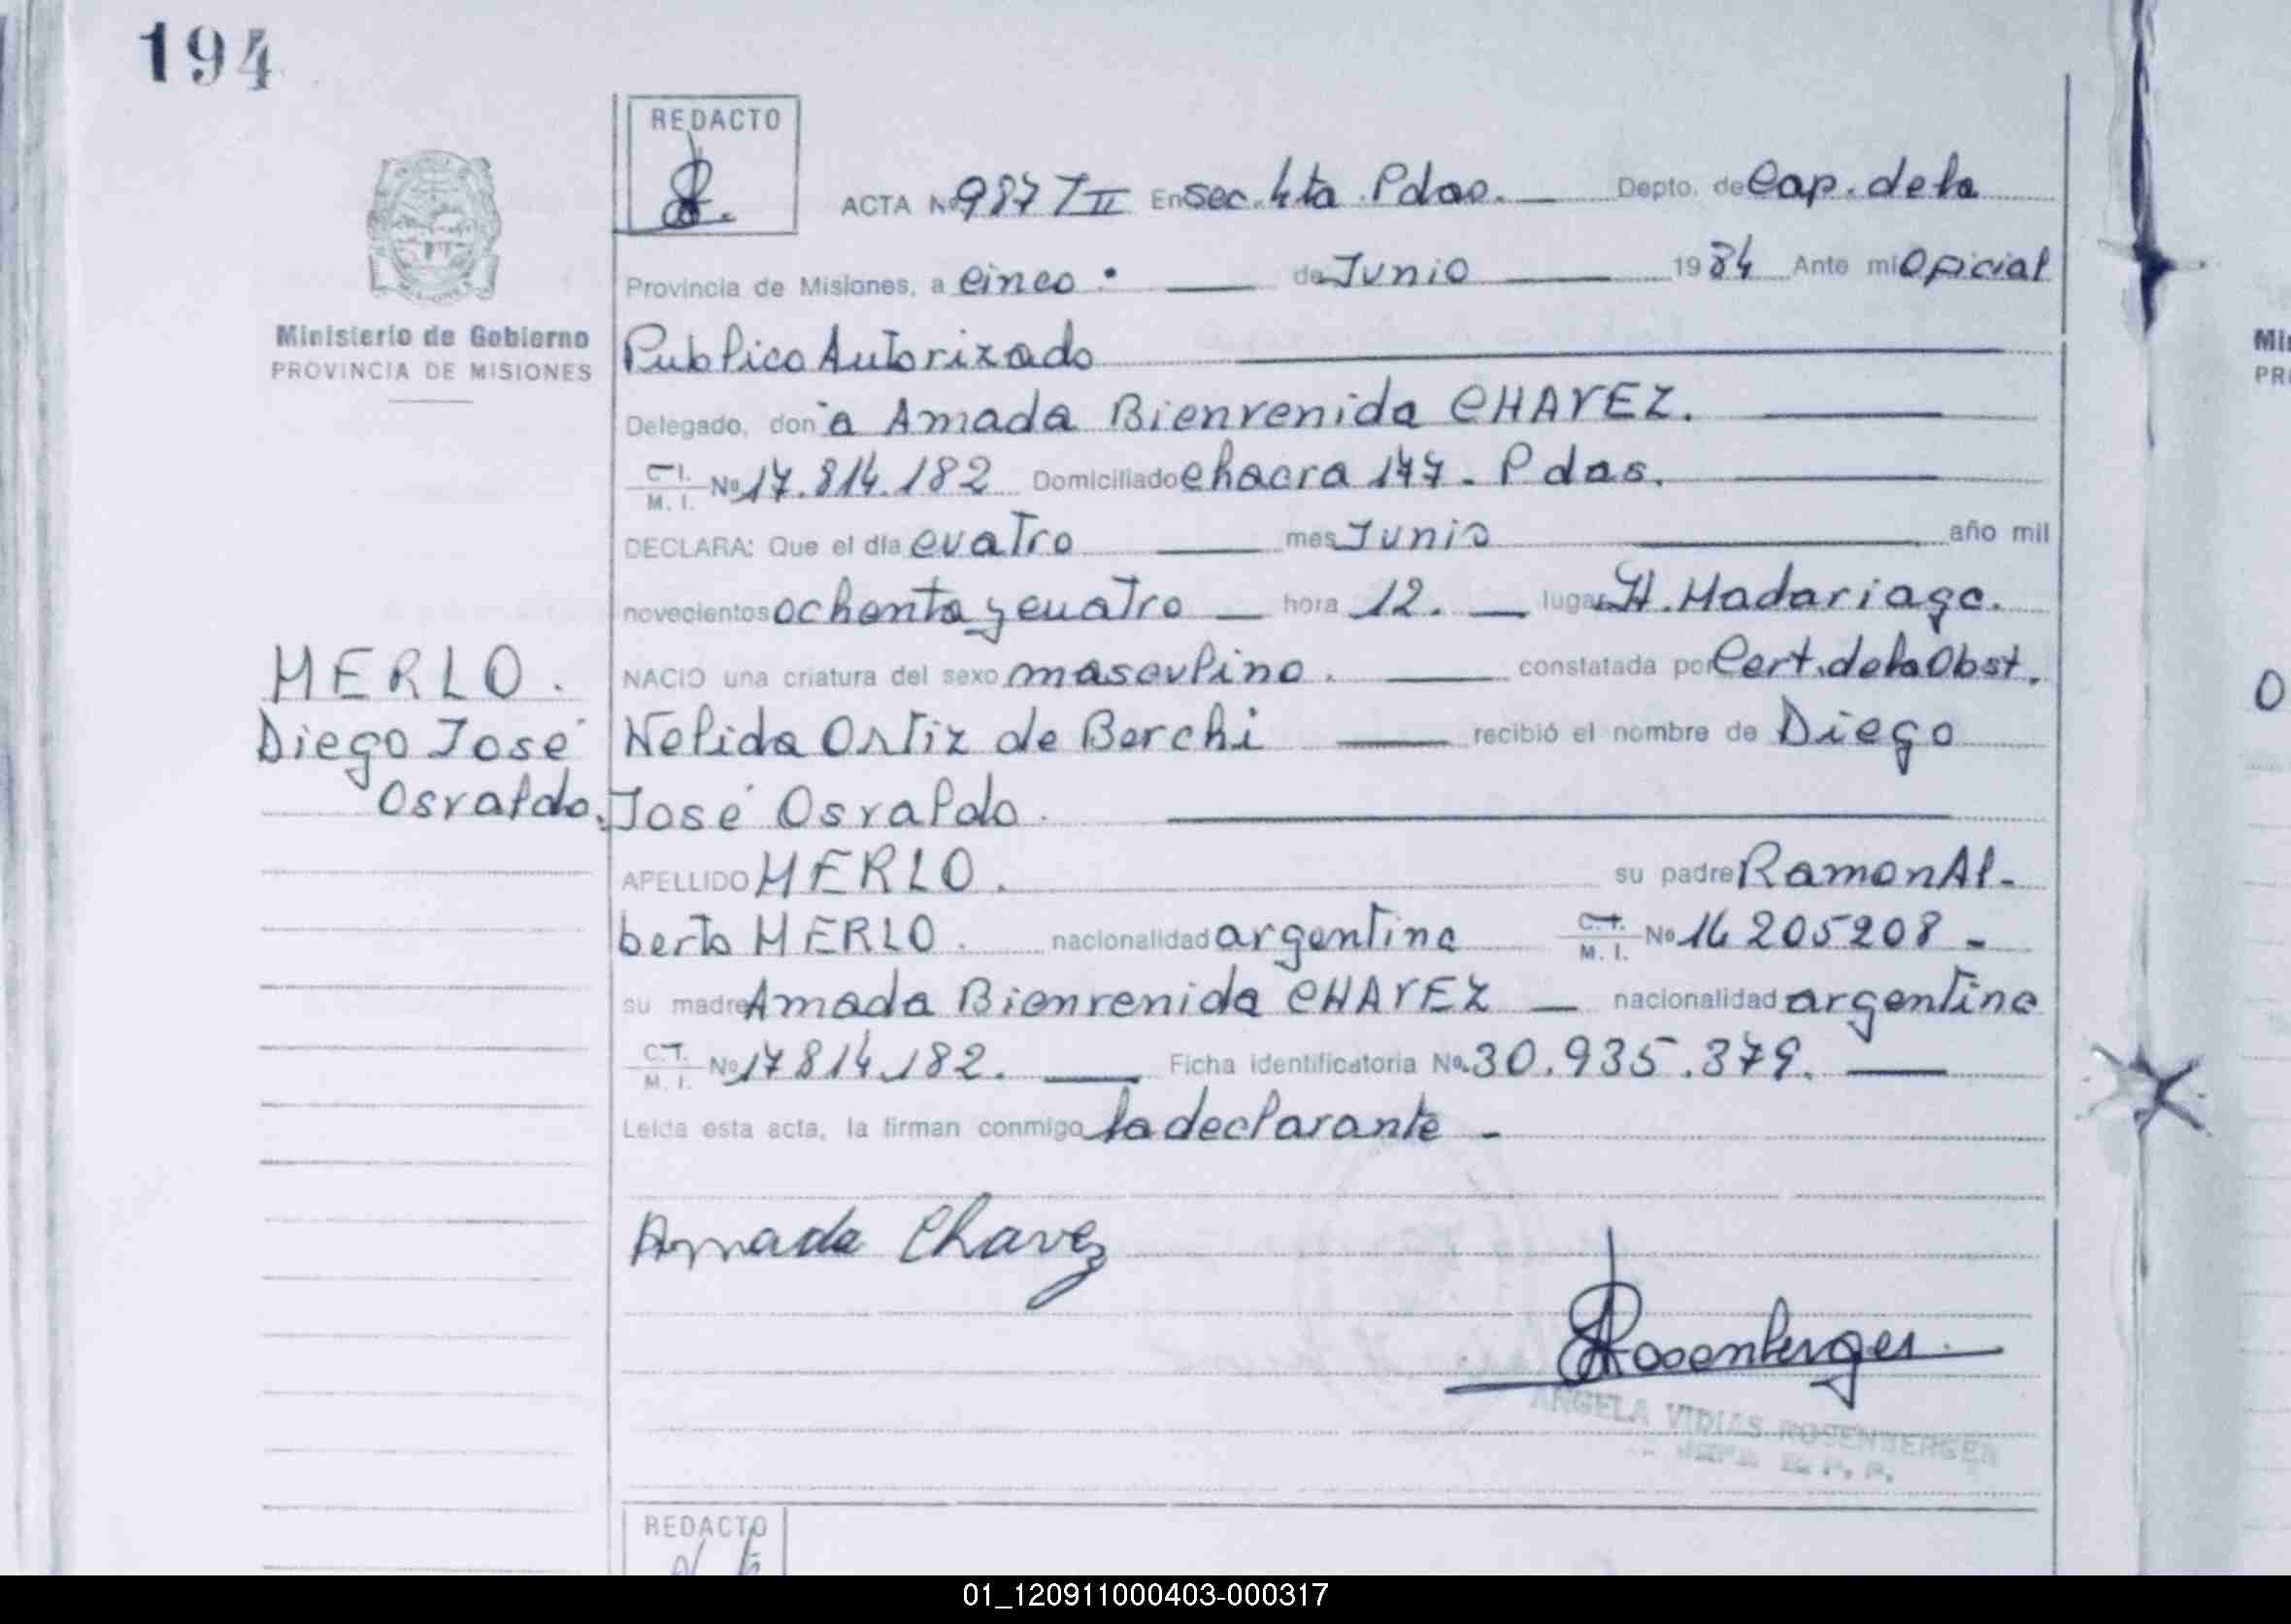 194
REDACTO
ACTA Nº 987 TII En sec. 4ta. Pdas. Depto. de Cap. de la
Provincia de Misiones, a cinco. de Junio 1984 Ante mi Oficial
Ministerio de Gobierno
PROVINCIA DE MISIONES
Publico Autorizado
Delegado, don~a Amada Bienvenida CHAVEZ.
C.I. M. I. Nº 17.814.182 Domiciliado chacra 147. Pdas.
DECLARA: Que el día cuatro mes Junio año mil
novecientos ochenta y cuatro hora 12. lugar H. Madariaga.
NACIO una criatura del sexo masculino. constatada por Cert. de la Obst.
MERLO.
Diego José
Osvaldo.
Nelida Ortiz de Berchi recibió el nombre de Diego
José Osvaldo.
APELLIDO MERLO. su padre Ramon Al-
berto MERLO. nacionalidad argentina C.I. M. I. Nº 16 205208 -
su madre Amada Bienvenida CHAVEZ nacionalidad argentina
C.I. M. I. Nº 17814.182. Ficha identificatoria Nº 30.935.379.
Leida esta acta, la firman conmigo la declarante -
Amada Chavez
Rosenberger
ANGELA VIDIAS ROSENBERGER
JEFA R. P. P.
REDACTO
Mi
PR
O
01_120911000403-000317